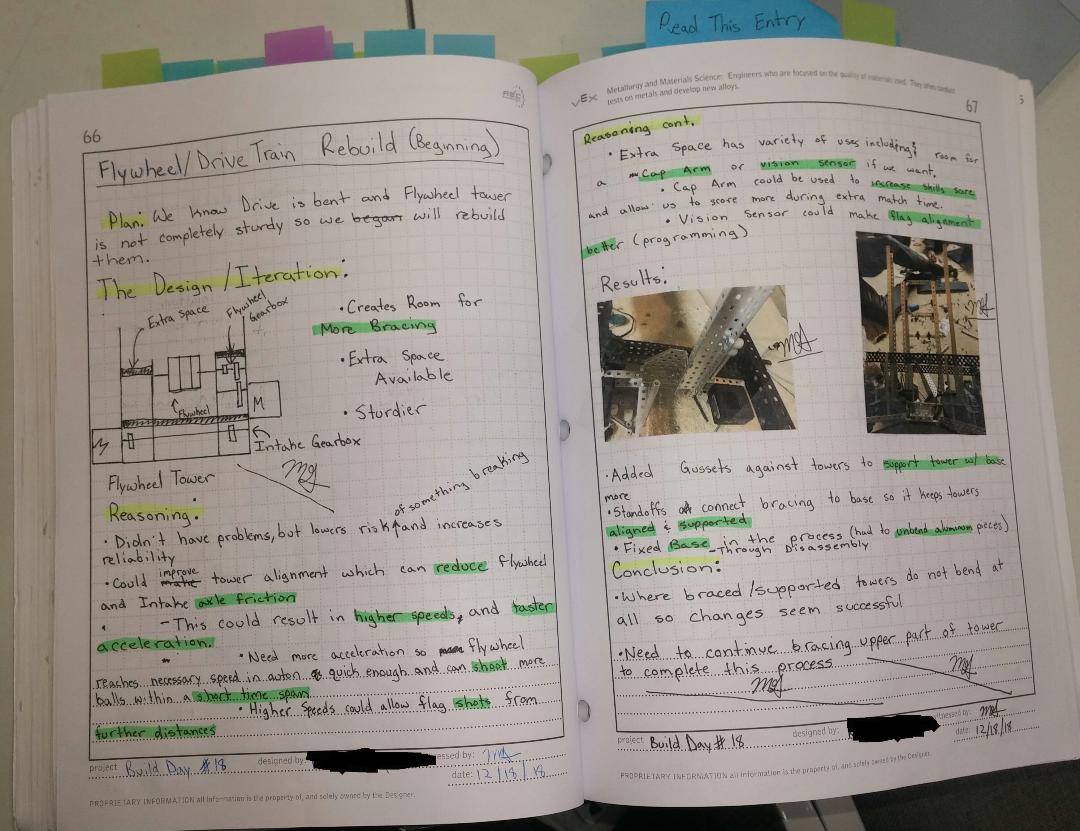 Read This Entry
66
Flywheel/Drive Train Rebuild (Beginning)
Plan: We know Drive is bent and Flywheel tower
is not completely sturdy so we began will rebuild
them.
The Design/Iteration:
Extra space
Flywheel
Gearbox
Flywheel
M
M
Intake Gearbox
Flywheel Tower
• Creates Room for
More Bracing
• Extra Space
Available
• Sturdier
Reasoning:
of something breaking
• Didn't have problems, but lowers risk and increases
reliability
• Could improve tower alignment which can reduce flywheel
and Intake axle friction
- This could result in higher speeds, and faster
acceleration.
• Need more acceleration so flywheel
reaches necessary speed in auton. quick enough and can shoot more
balls within a short time span
• Higher Speeds could allow flag shots from
further distances
project Build Day #18
designed by:
essed by:
date: 12/18/18
PROPRIETARY INFORMATION all information is the property of, and solely owned by the Designer.
VEX
Metallurgy and Materials Science: Engineers who are focused on the quality of materials used. They often conduct
tests on metals and develop new alloys.
67
Reasoning cont.
• Extra Space has variety of uses including: room for
a Cap Arm or vision sensor if we want.
• Cap Arm could be used to increase skills score
and allow us to score more during extra match time.
• Vision Sensor could make flag alignment
better (programming)
Results:
• Added Gussets against towers to support tower w/ base
more
• Standoffs connect bracing to base so it keeps towers
aligned & supported
• Fixed Base in the process (had to unbend aluminum pieces)
- through Disassembly
Conclusion:
• Where braced/supported towers do not bend at
all so changes seem successful
• Need to continue bracing upper part of tower
to complete this process
project Build Day #18
designed by:
witnessed by:
date: 12/18/18
PROPRIETARY INFORMATION all information is the property of, and solely owned by the Designer.